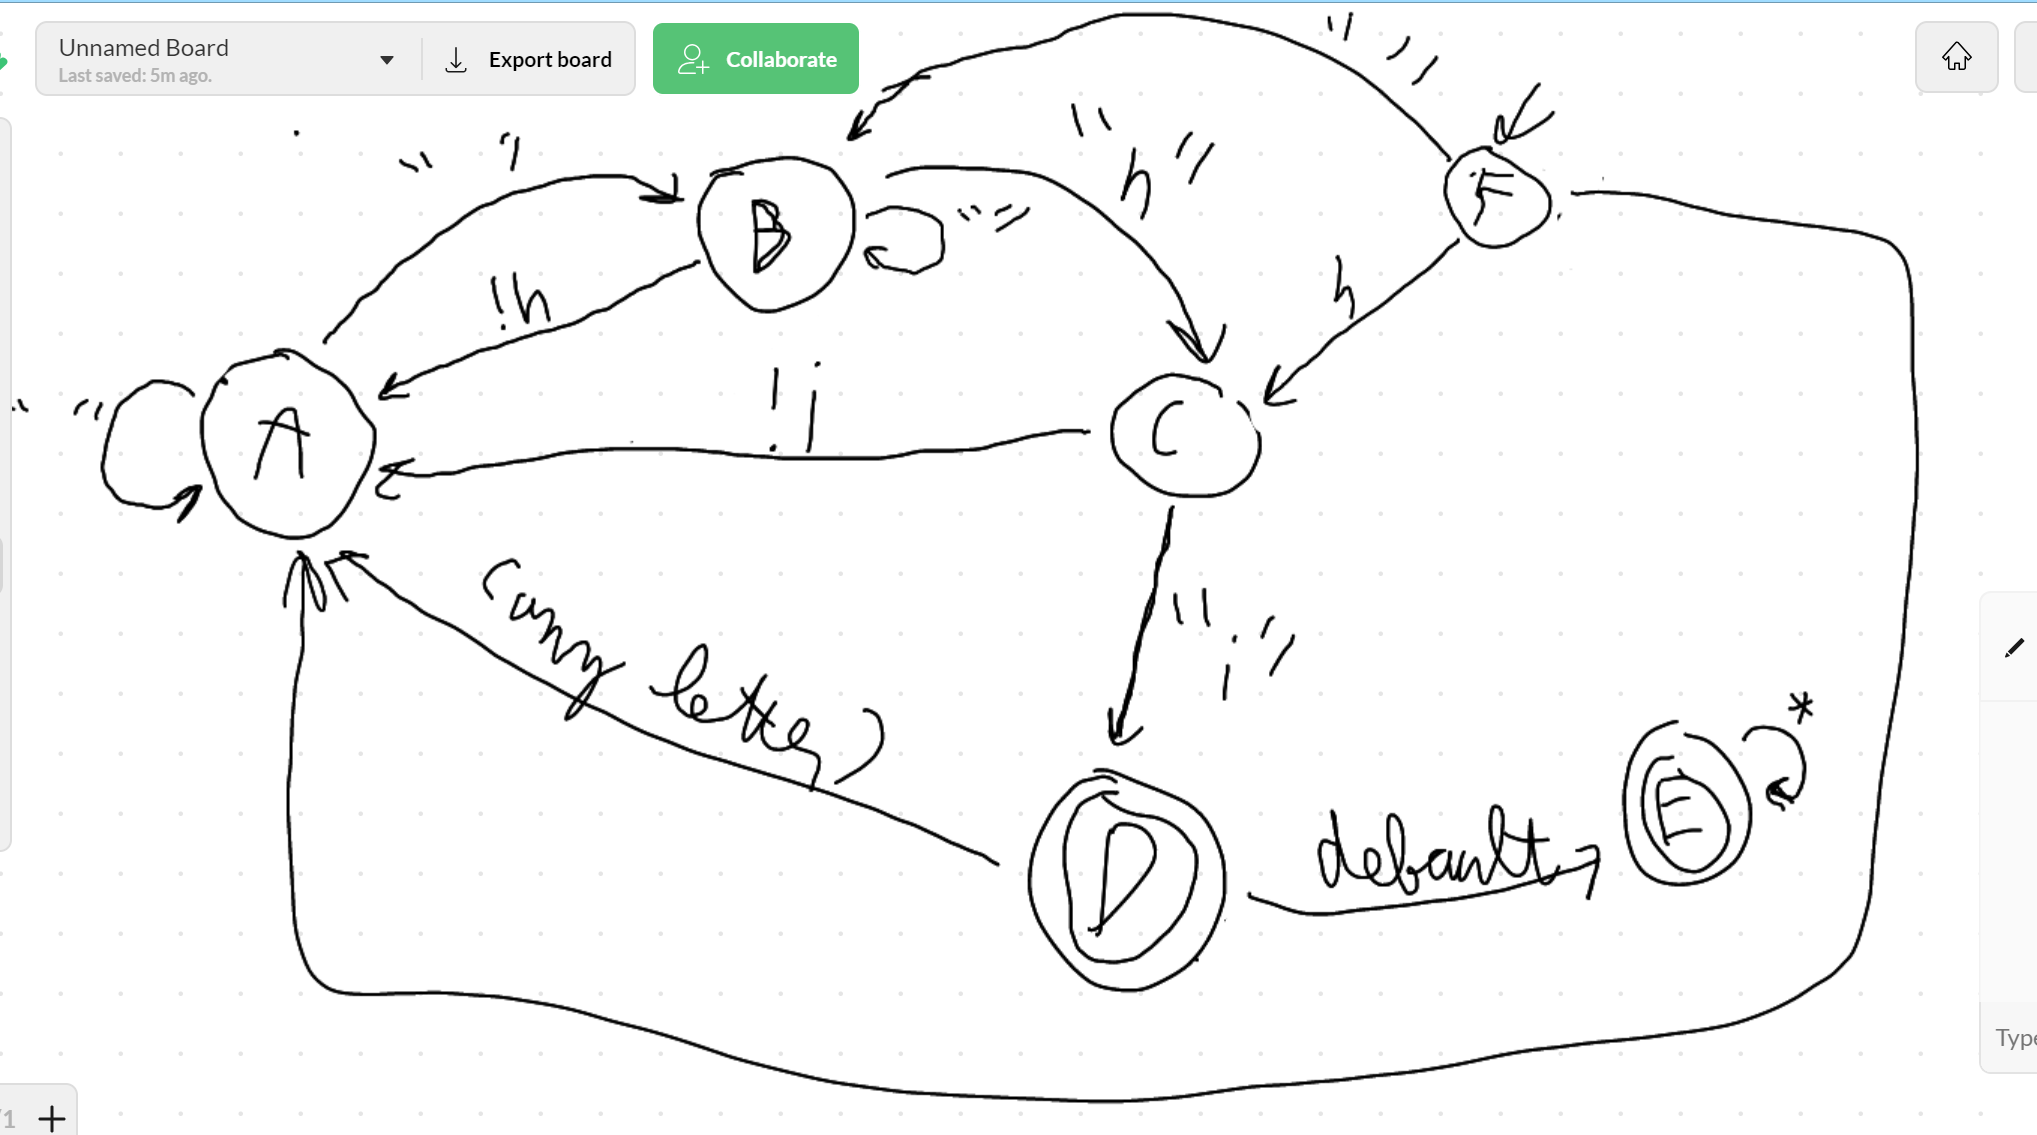 Unnamed Board
Last saved: 5m ago.
Export board
Collaborate
" "
" "
"h"
F
B
" "
!h
h
A
" "
!j
C
(any letter)
"i"
*
E
default
D
Type
/1 +